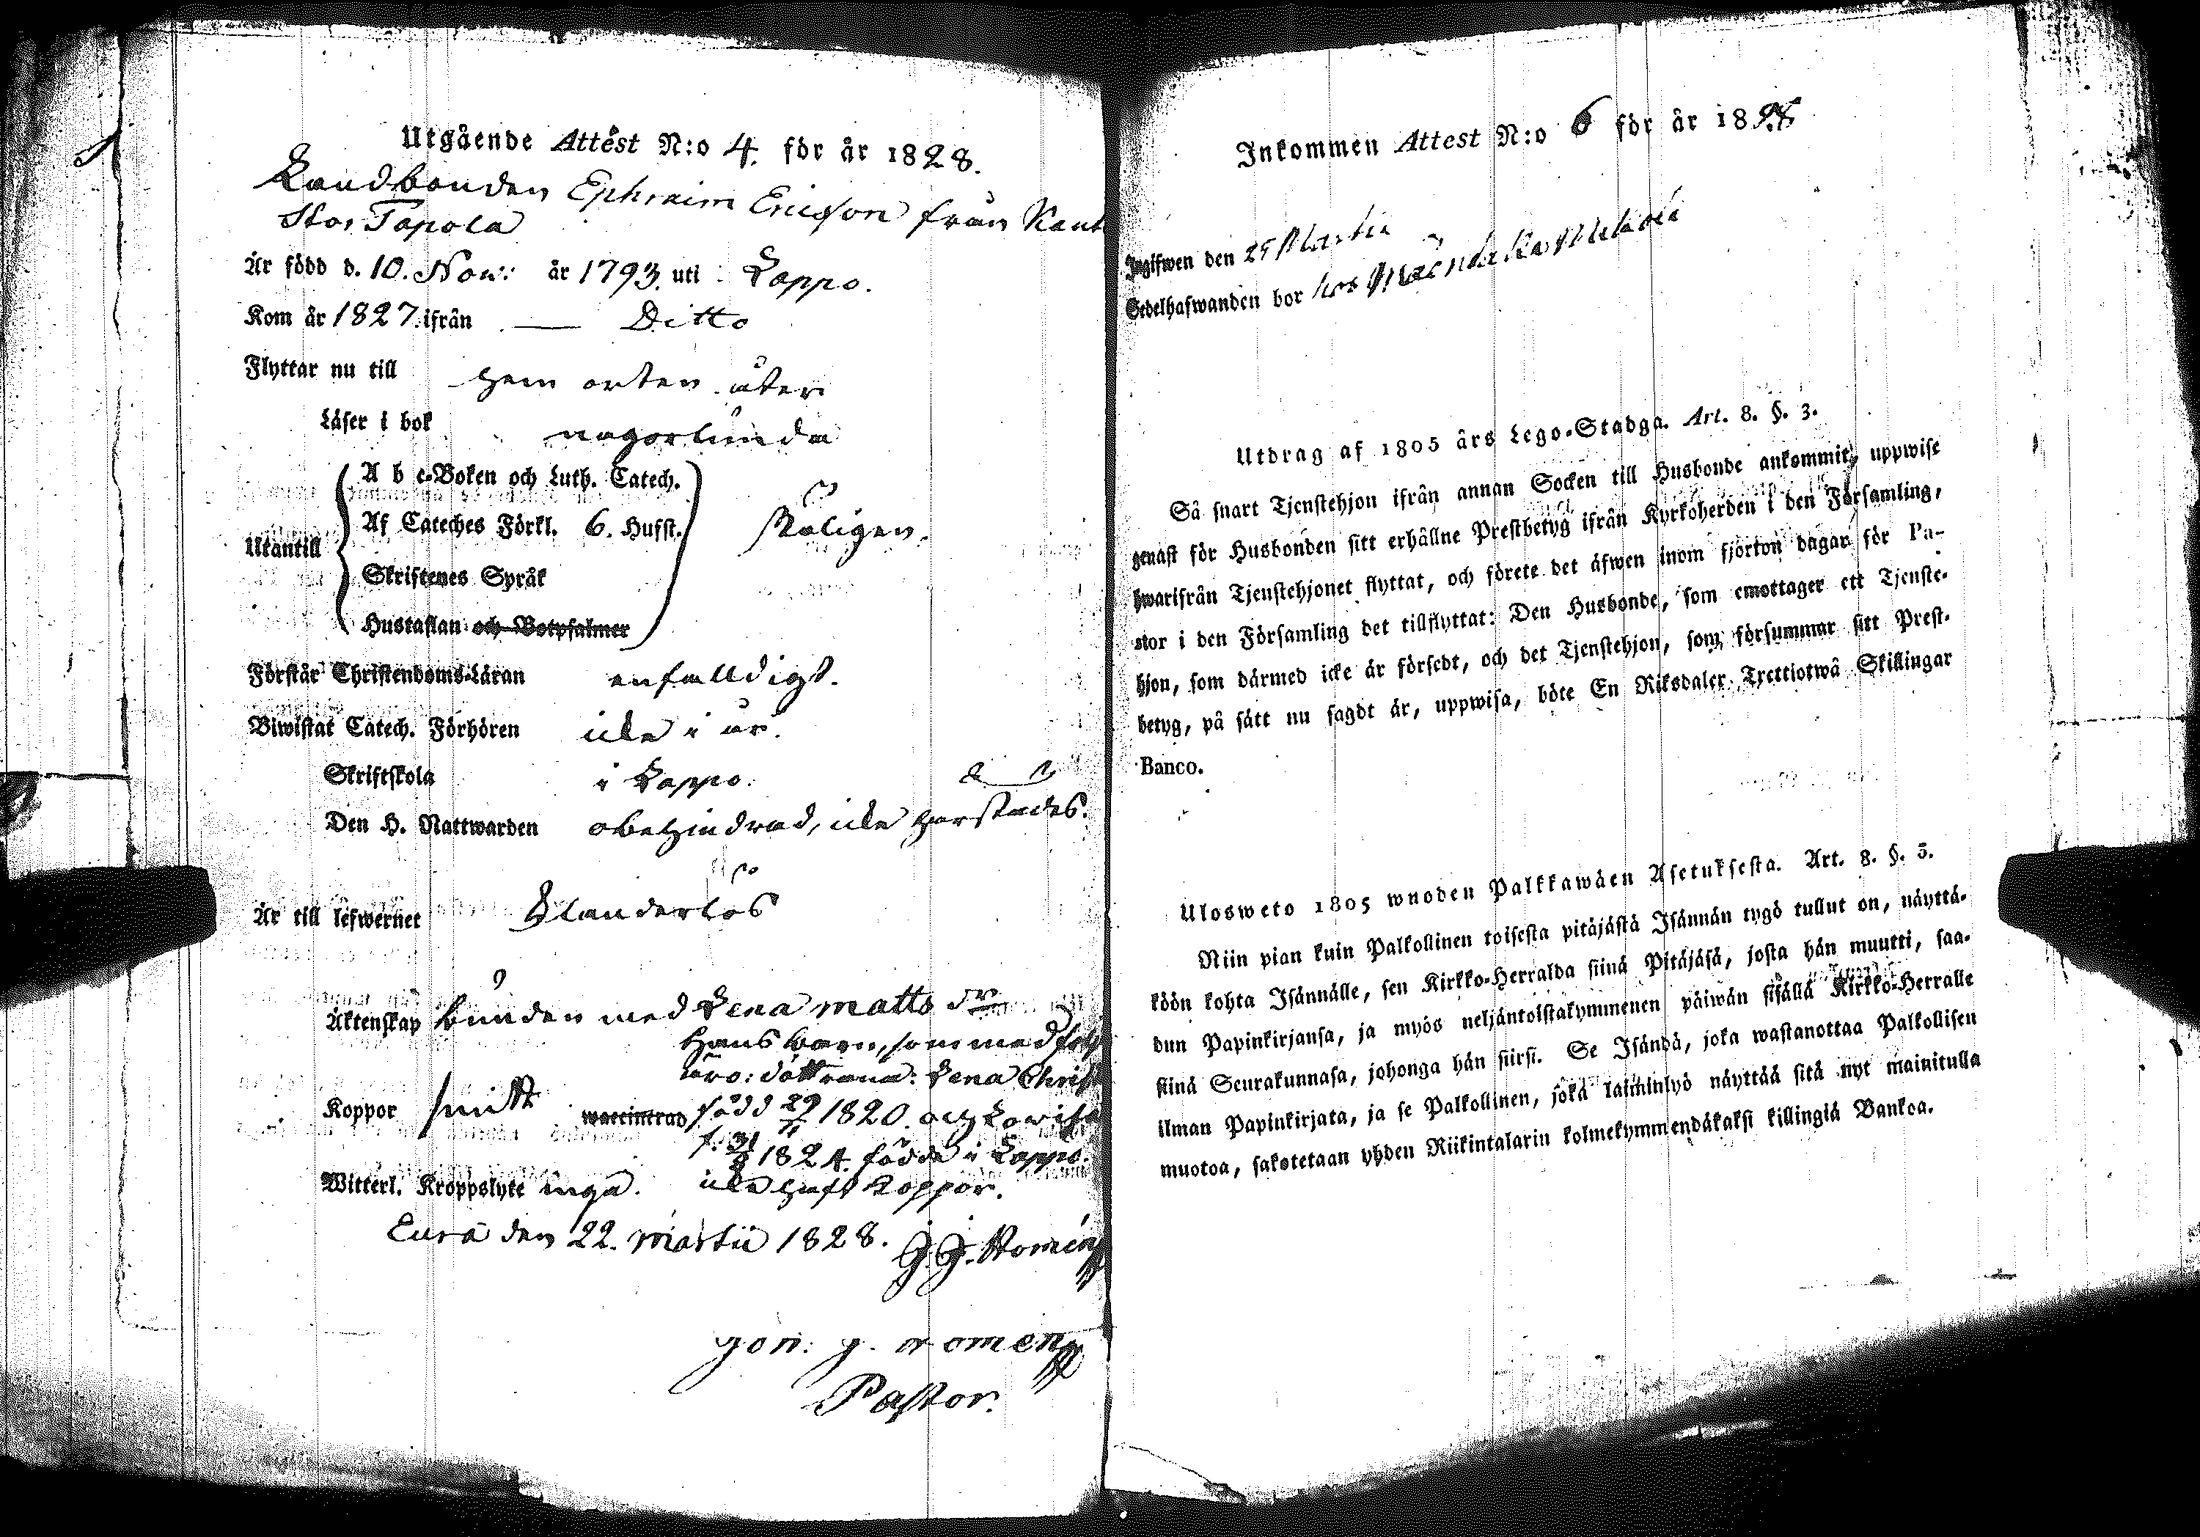 Utgående Attest N:o 4. för år 1828.
Landbonden Ephraim Ericsson från
Stor Tapola
Är född d. 10. Nov: år 1793. uti Lappo.
Kom år 1827. ifrån — Ditto
Flyttar nu till hem orten åter
Läser i bok någorlunda
Utantill
A b c-Boken och Luth. Catech.
Af Cateches Förkl. 6. Hufst.
Skriftenes Språk
Hustaflan och Botpsalmer
skäligen.
Förstår Christendoms-Läran enfalldigt.
Biwistat Catech. Förhören icke i år.
Skriftskola i Lappo.
Den H. Nattwarden obehindrad, icke härstädes.
Är till lefwernet Klanderlös
Äktenskap bunden med Lena Matts dr
Hans barn, som med
äro: döttrarna: Lena
Koppor haft waccinerad född 29/11 1820. och Lovisa
f. 31/8 1824. födda i Lappo.
Witterl. Kroppslyte inga. icke haft koppor.
Eura den 22. Martii 1828. J. J. Romén
Jon: J. Romén
Pastor.
Inkommen Attest N:o 6 för år 1828
Ingifwen den 29 Martii
Sedelhafwanden bor hos
Utdrag af 1805 års Lego-Stadga. Art. 8. §. 3.
Så snart Tjenstehjon ifrån annan Socken till Husbonde ankommit, uppwise
genast för Husbonden sitt erhållne Prestbetyg ifrån Kyrkoherden i den Församling,
hwarifrån Tjenstehjonet flyttat, och förete det äfwen inom fjorton dagar för Pa-
stor i den Församling det tillflyttat: Den Husbonde, som emottager ett Tjenste-
hjon, som därmed icke är försedt, och det Tjenstehjon, som försummar sitt Prest-
betyg, på sätt nu sagdt är, uppwisa, böte En Riksdaler Trettiotwå Skillingar
Banco.
Ulosweto 1805 wuoden Palkkawäen Asetuksesta. Art. 8. §. 3.
Niin pian kuin Palkollinen toisesta pitäjästä Isännän tygö tullut on, näyttä-
köön kohta Isännälle, sen Kirkko-Herralda siinä Pitäjäsä, josta hän muutti, saa-
dun Papinkirjansa, ja myös neljäntoistakymmenen päiwän sisällä Kirkko-Herralle
siinä Seurakunnasa, johonga hän siirsi. Se Isändä, joka wastanottaa Palkollisen
ilman Papinkirjata, ja se Palkollinen, joka laiminlyö näyttää sitä nyt mainitulla
muotoa, sakotetaan yhden Riikintalarin kolmekymmendäkaksi killingiä Bankoa.